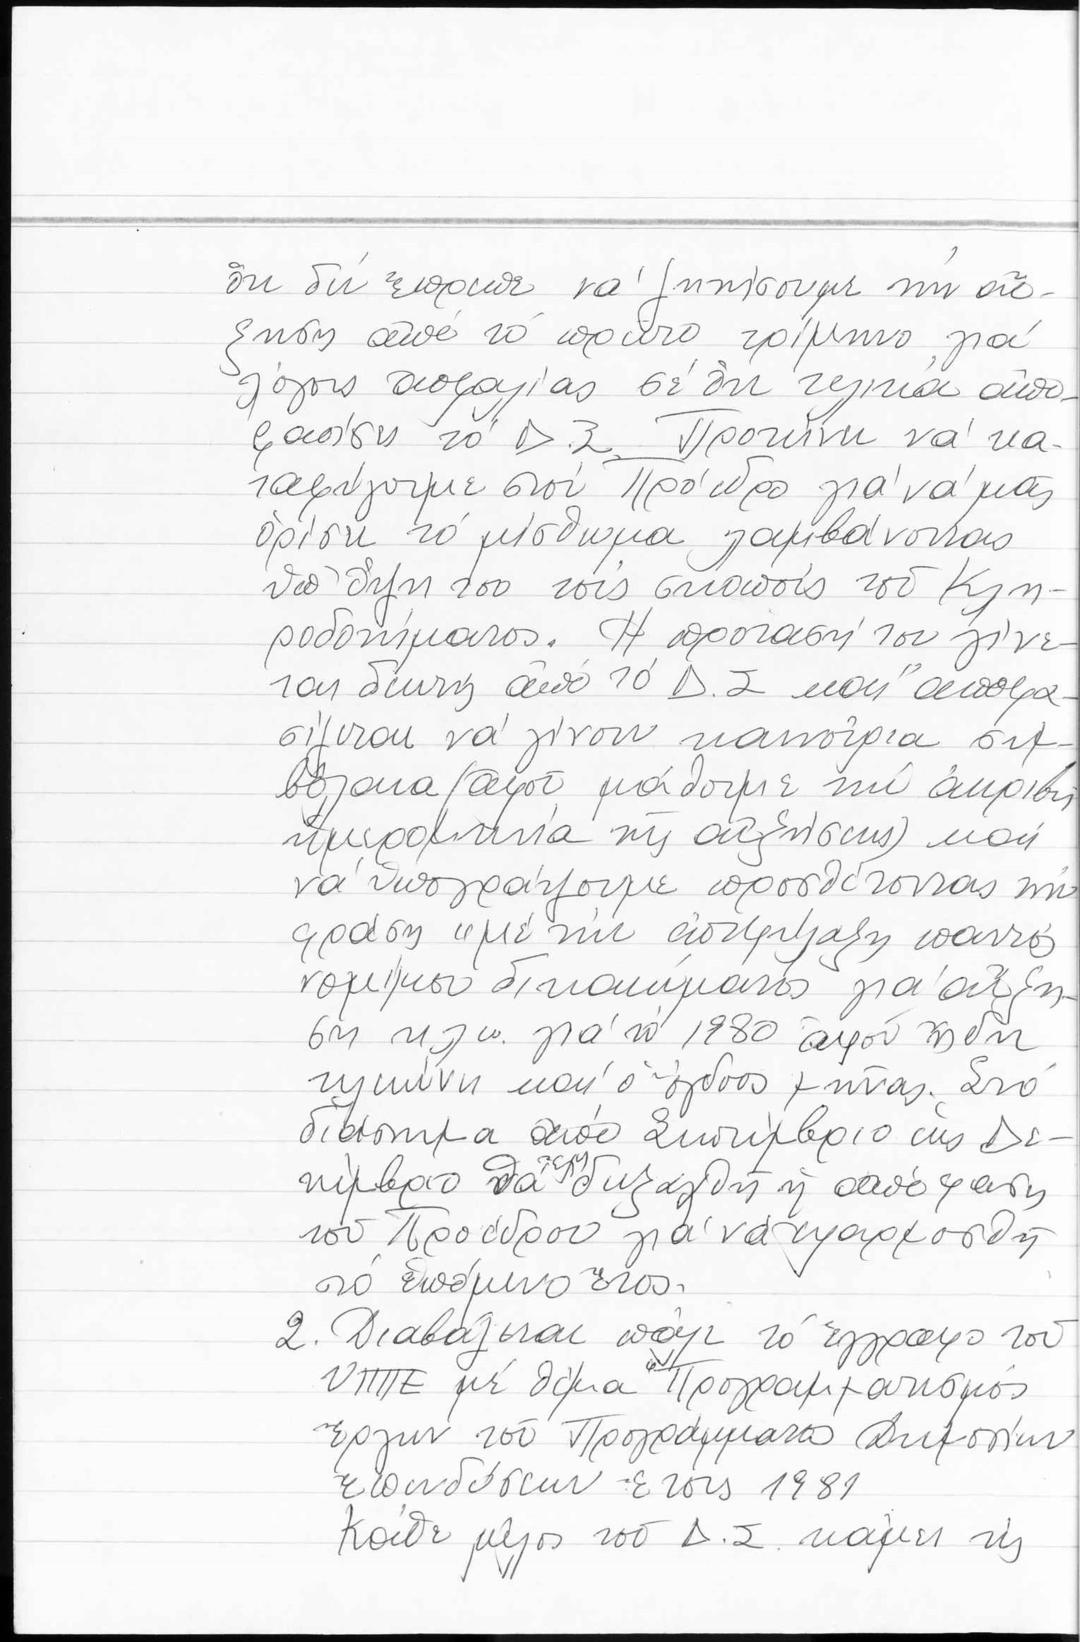 ὅτι δέν ἔπρεπε νά ζητήσουμε τήν αὔ-
ξηση ἀπό τό πρῶτο τρίμηνο γιά
λόγους ἀσφαλείας σέ ὅτι τελικά ἀπο-
φασίση τό Δ.Σ. Προτείνει νά κα-
ταφύγουμε στόν Πρόεδρο γιά νά μᾶς
ὁρίση τό μίσθωμα λαμβάνοντας
ὑπ' ὄψη του τούς σκοπούς τοῦ Κλη-
ροδοτήματος. Ἡ πρότασή του γίνε-
ται δεκτή ἀπό τό Δ.Σ καί ἀποφα-
σίζεται νά γίνουν καινούρια συμ-
βόλαια (ἀφοῦ μάθουμε τήν ἀκριβή
ἡμερομηνία τῆς αὐξήσεως) καί
νά ὑπογράψουμε προσθέτοντας τήν
φράση "μέ τήν ἐπιφύλαξη παντός
νομίμου δικαιώματος γιά αὔξη-
ση κλπ. γιά τό 1980 ἀφοῦ ἤδη
τελειώνει καί ὁ ὄγδοος μῆνας. Στό
διάστημα ἀπό Σεπτέμβριο ἕως Δε-
κέμβριο θά διεξαχθῆ ἡ ἀπόφαση
τοῦ Προέδρου γιά νά ἐφαρμοσθῆ
στό ἑπόμενο ἔτος.
2. Διαβάζεται πάλι τό ἔγγραφο τοῦ
ΥΠΠΕ μέ θέμα "Προγραμματισμός
ἔργων τοῦ Προγράμματος Δημοσίων
Ἐπενδύσεων ἔτους 1981
Κάθε μέλος τοῦ Δ.Σ. κάμει τίς